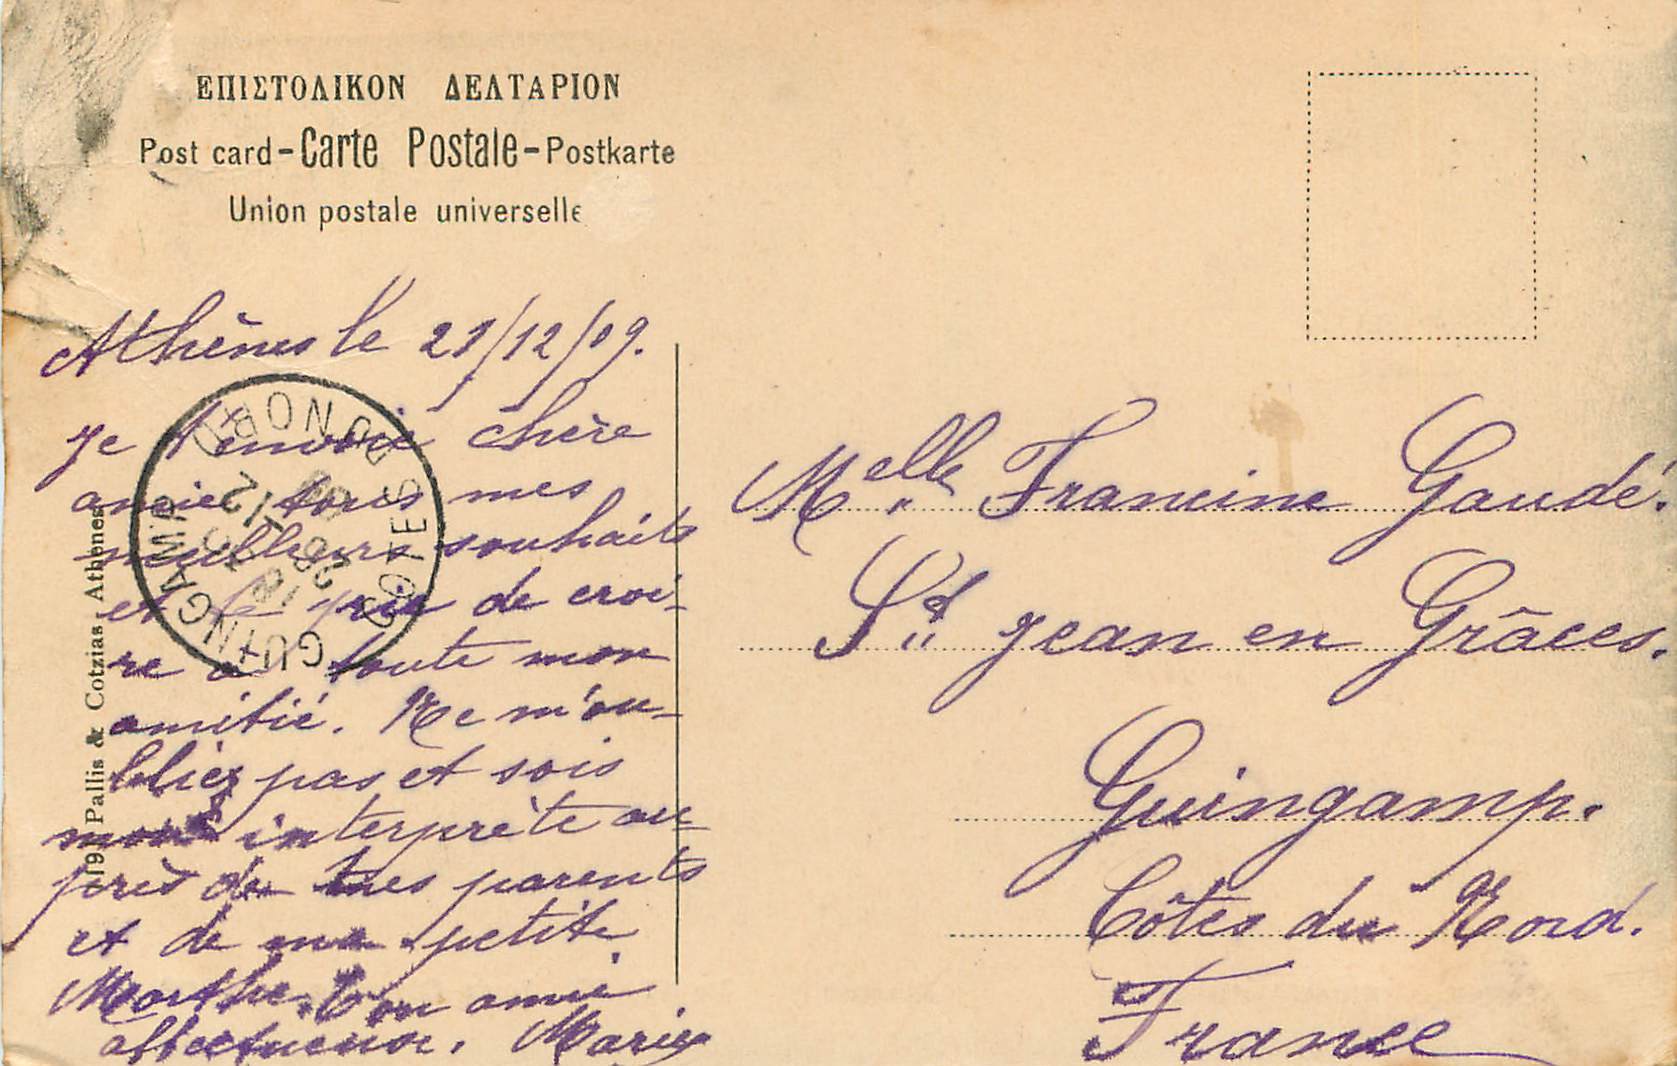 ΕΠΙΣΤΟΛΙΚΟΝ ΔΕΛΤΑΡΙΟΝ
Post card - Carte Postale - Postkarte
Union postale universelle
Athènes le 21/12/09.
Je t'envoie chère
amie tous mes
meilleurs souhaits
et te prie de croi-
re à toute mon
amitié. Ne m'ou-
bliez pas et sois
mon interprète au-
près de tes parents
et de ma petite
Marthe. Ton amie
affectueuse. Marie
Melle Francine Gaudé.
St Jean en Grâces.
Guingamp.
Côtes du Nord.
France
GUINGAMP
COTES DU NORD
191 Pallis & Cotzias Athènes